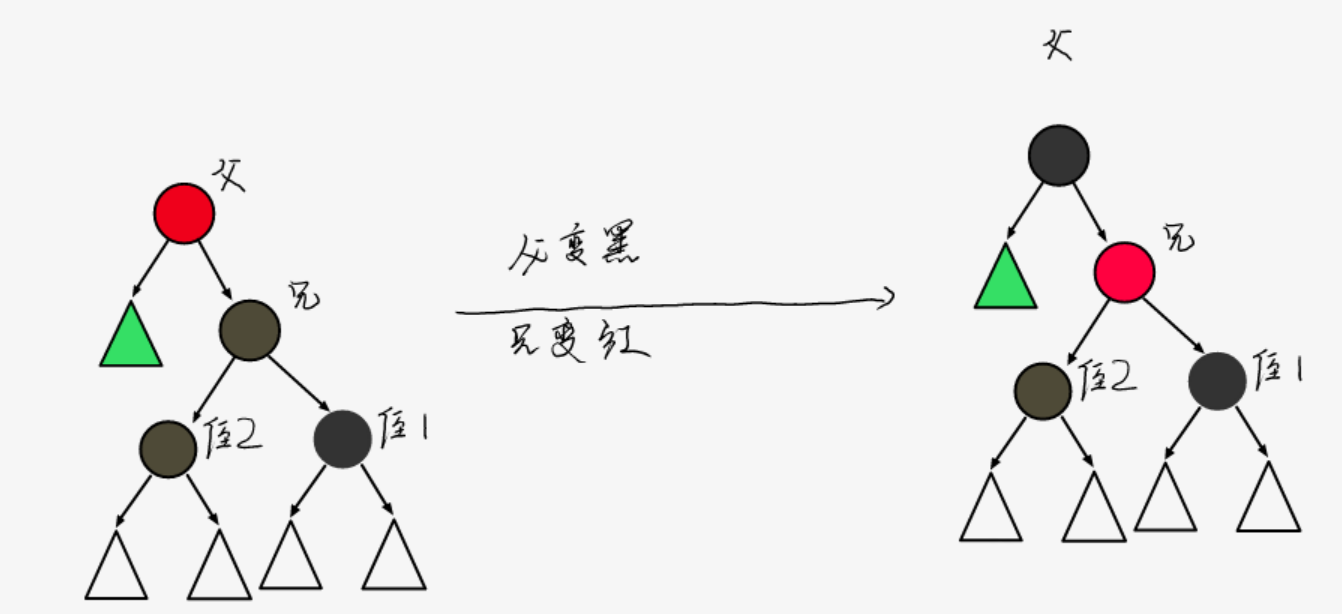 父
父
兄
侄2
侄1
父变黑
兄变红
兄
侄2
侄1